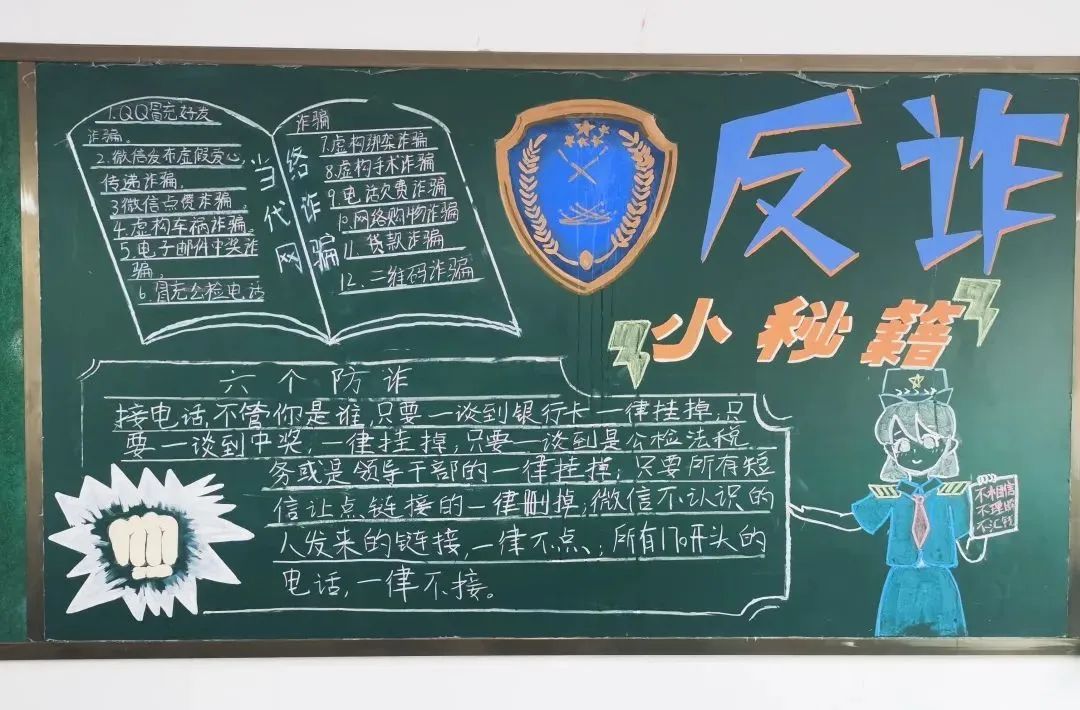 反诈
小秘籍
当代网
络诈骗
1.QQ冒充好友
诈骗。
2.微信发布虚假爱心,
传递诈骗.
3微信点赞诈骗。
4.虚构车祸诈骗。
5.电子邮件中奖诈
骗。
6.冒充公检电话
诈骗
7.虚构绑架诈骗
8.虚构手术诈骗
9.电话欠费诈骗
10.网络购物诈骗
11.贷款诈骗
12.二维码诈骗
六个防诈
接电话,不管你是谁,只要一谈到银行卡一律挂掉;只
要一谈到中奖,一律挂掉;只要一谈到是公检法税
务或是领导干部的一律挂掉;只要所有短
信让点链接的一律删掉;微信不认识的
人发来的链接,一律不点、;所有170开头的
电话,一律不接。
不相信
不理睬
不汇钱